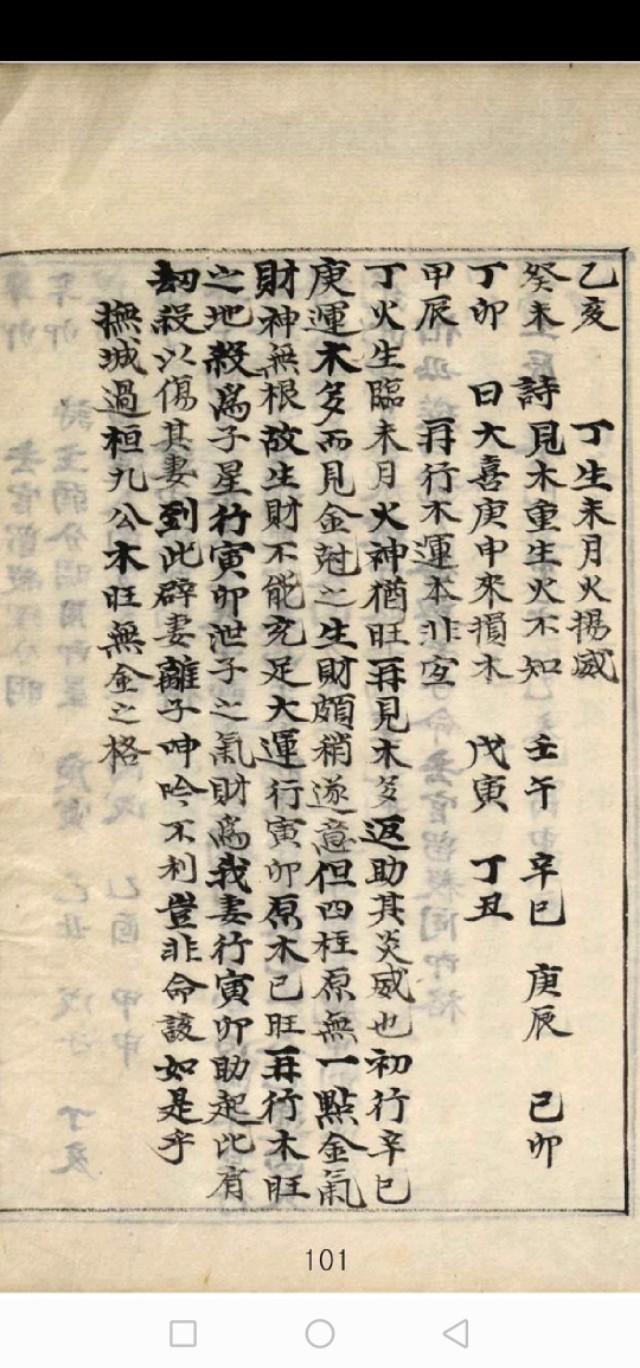 乙亥　　丁生未月火揚威
癸未　詩見木重生火不知　壬午　辛巳　庚辰　己卯
丁卯　曰大喜庚申來損木　戊寅　丁丑
甲辰　　再行木運本非宜
丁火生臨未月火神猶旺再見木多返助其炎威也初行辛巳
庚運木多而見金尅之生財頗稍遂意但四柱原無一點金氣
財神無根故生財不能充足大運行寅卯原木已旺再行木旺
之地殺為子星行寅卯泄子之氣財為我妻行寅卯助起比有
刼殺以傷其妻到此辟妻離子呻吟不利豈非命該如是乎
撫城過桓九公木旺無金之格
101